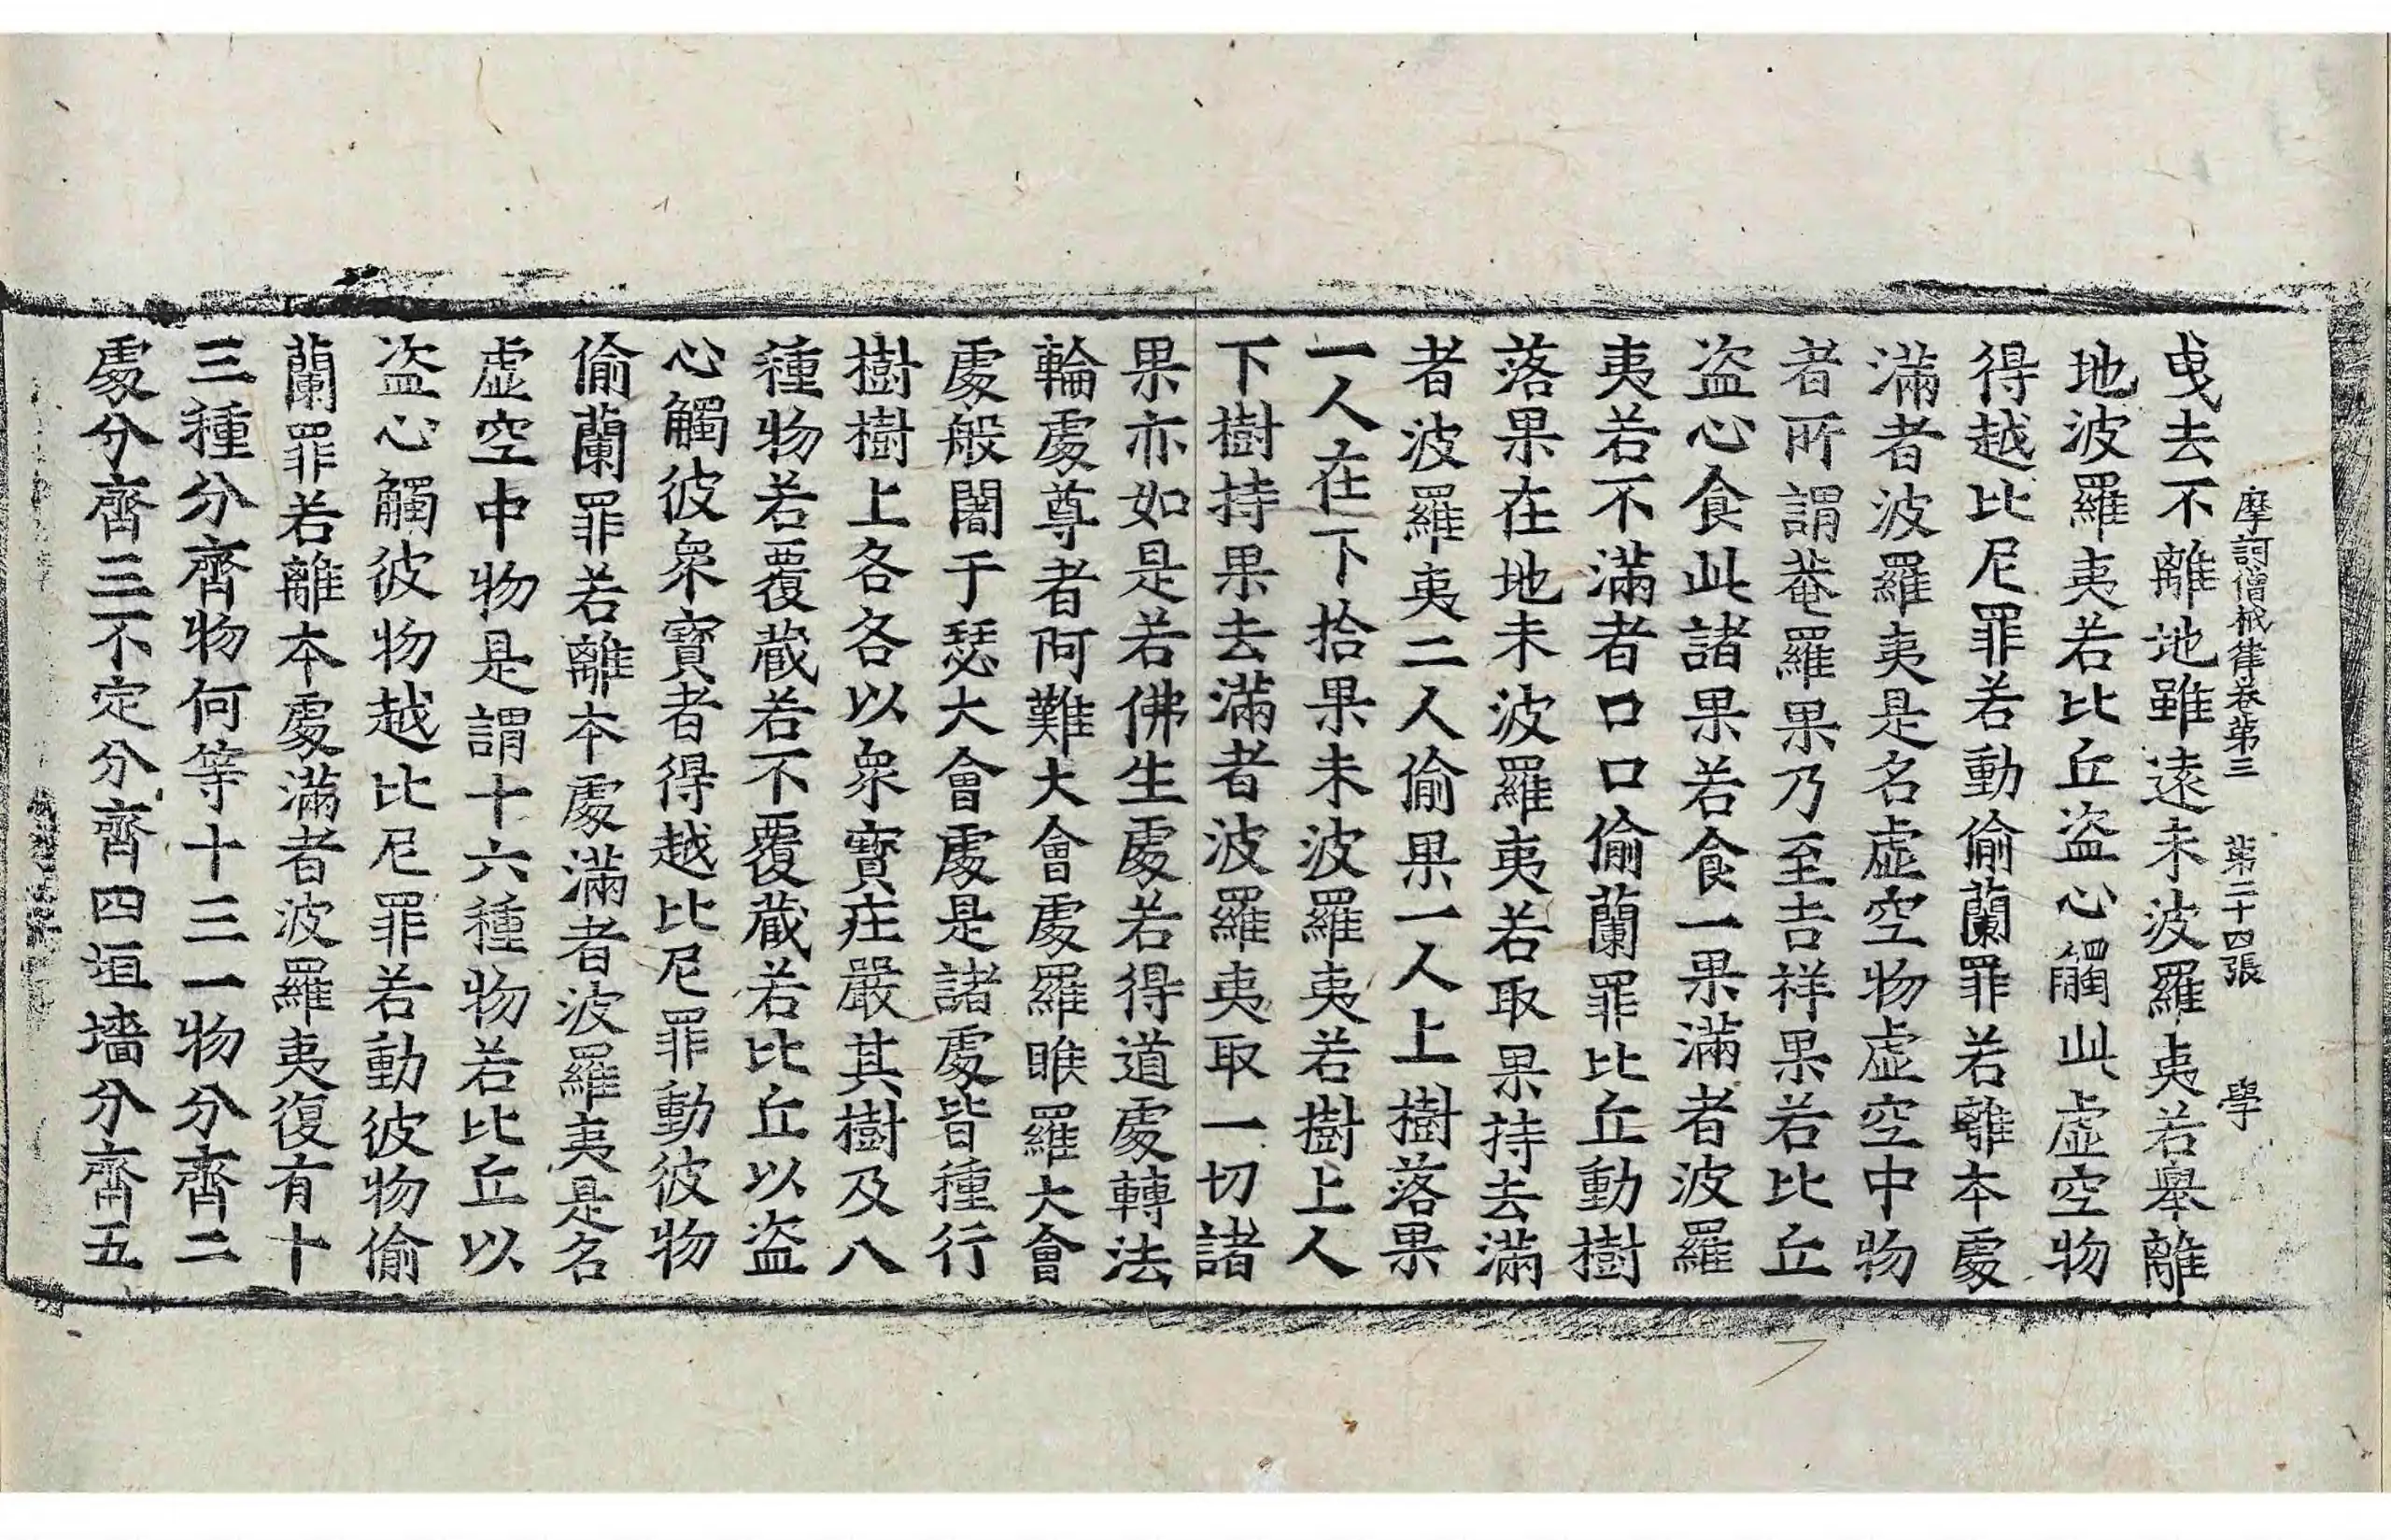 摩訶僧祇律卷第三 第二十四張 學
曳去不離地雖遠未波羅夷若舉離
地波羅夷若比丘盜心觸此虛空物
得越比尼罪若動偷蘭罪若離本處
滿者波羅夷是名虛空物虛空中物
者所謂菴羅果乃至吉祥果若比丘
盜心食此諸果若食一果滿者波羅
夷若不滿者口口偷蘭罪比丘動樹
落果在地未波羅夷若取果持去滿
者波羅夷二人偷果一人上樹落果
一人在下拾果未波羅夷若樹上人
下樹持果去滿者波羅夷取一切諸
果亦如是若佛生處若得道處轉法
輪處尊者阿難大會處羅睺羅大會
處般闍于瑟大會處是諸處皆種行
樹樹上各各以衆寶莊嚴其樹及八
種物若覆蔵若不覆蔵若比丘以盜
心觸彼衆寶者得越比尼罪動彼物
偷蘭罪若離本處滿者波羅夷是名
虛空中物是謂十六種物若比丘以
盜心觸彼物越比尼罪若動彼物偷
蘭罪若離本處滿者波羅夷復有十
三種分齊物何等十三一物分齊二
處分齊三不定分齊四垣墻分齊五